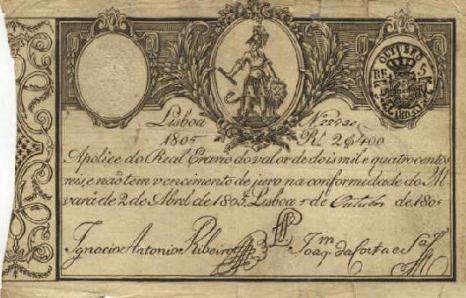 Lisboa
1805 Rs. 2$400
Apolice do Real Erario do valor de dois mil e quatrocentos
reis, e não tem vencimento de juro na conformidade do Al
vará de 2 de Abril de 1805. Lisboa de Outubro de 1805
Ignacio Antonio Ribeiro